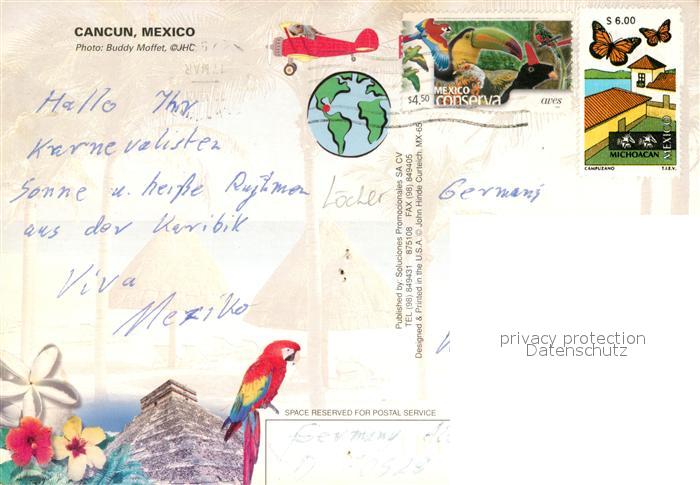 CANCUN, MEXICO
Photo: Buddy Moffet, ©JHC
$4,50
MEXICO
conserva
aves
$ 6.00
MICHOACAN
MEXICO
CAMPUZANO
T.I.E.V.
Hallo Ihr
Karnevalisten
Sonne u. heiße Rythmen
aus der Karibik
Viva
Mexiko
Löcher
Germany
Published by: Soluciones Promocionales SA CV
TEL (98) 849431 875108 FAX (98) 849405
Designed & Printed in the U.S.A. © John Hinde Curteich. MX-65
privacy protection
Datenschutz
SPACE RESERVED FOR POSTAL SERVICE
Germany